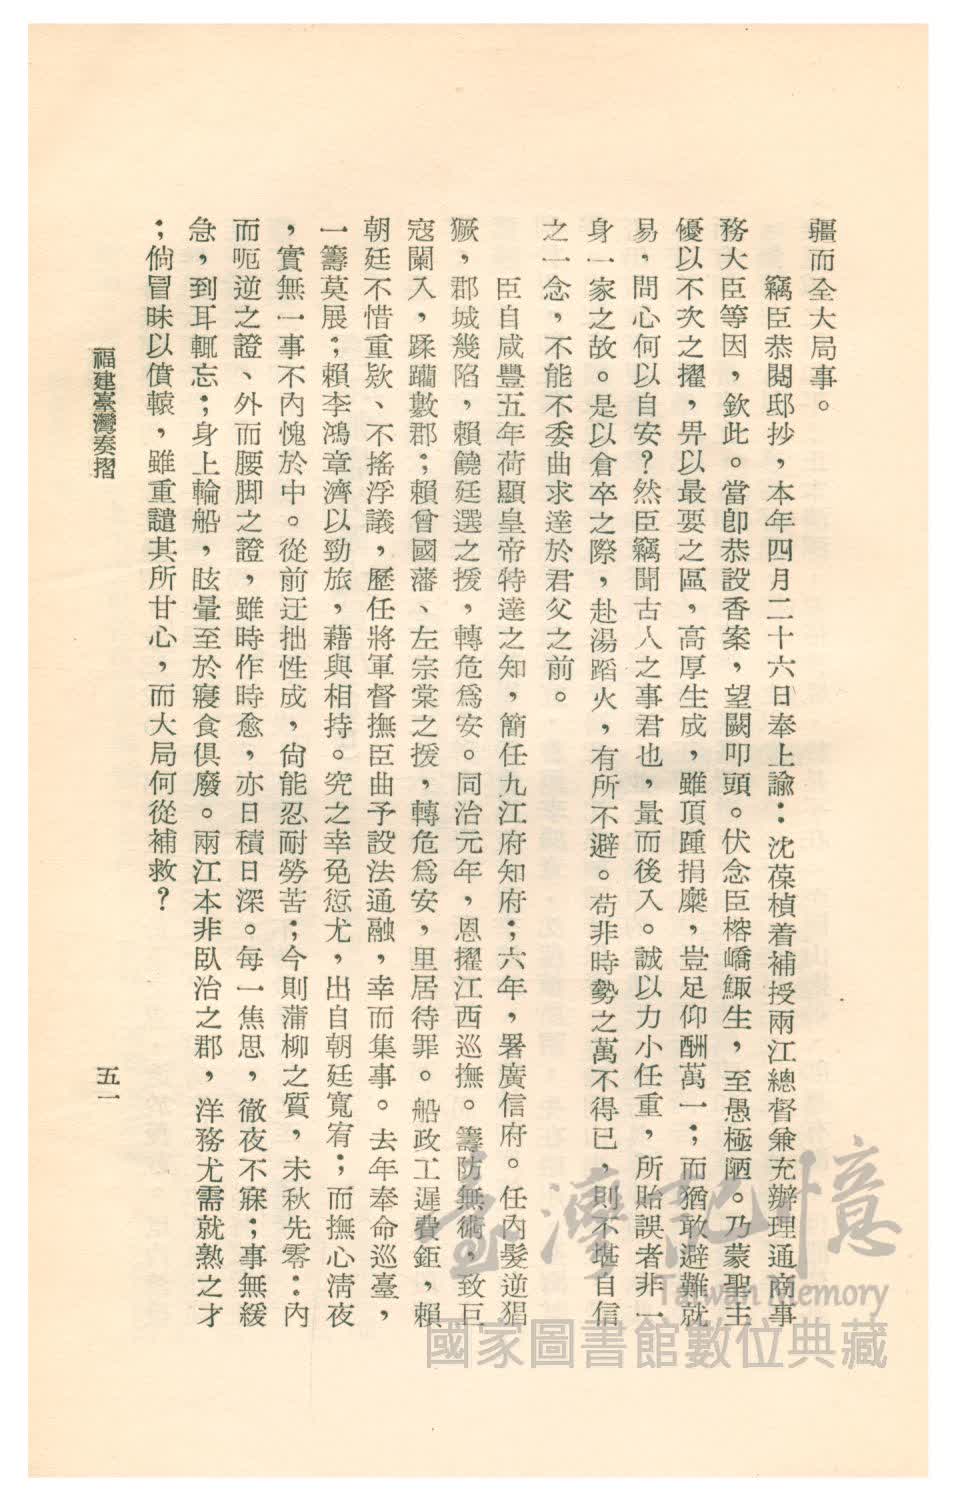 疆而全大局事。
竊臣恭閱邸抄，本年四月二十六日奉上諭：沈葆楨着補授兩江總督兼充辦理通商事
務大臣等因，欽此。當卽恭設香案，望闕叩頭。伏念臣榕嶠鯫生，至愚極陋。乃蒙聖主
優以不次之擢，畀以最要之區，高厚生成，雖頂踵捐糜，豈足仰酬萬一；而猶敢避難就
易，問心何以自安？然臣竊聞古人之事君也，量而後入。誠以力小任重，所貽誤者非一
身一家之故。是以倉卒之際，赴湯蹈火，有所不避。苟非時勢之萬不得已，則不堪自信
之一念，不能不委曲求達於君父之前。
臣自咸豐五年荷顯皇帝特達之知，簡任九江府知府；六年，署廣信府。任內髮逆猖
獗，郡城幾陷，賴饒廷選之援，轉危爲安。同治元年，恩擢江西巡撫。籌防無術，致巨
寇闌入，蹂躪數郡；賴曾國藩、左宗棠之援，轉危爲安，里居待罪。船政工遲費鉅，賴
朝廷不惜重欵、不搖浮議，歷任將軍督撫臣曲予設法通融，幸而集事。去年奉命巡臺，
一籌莫展；賴李鴻章濟以勁旅，藉與相持。究之幸免愆尤，出自朝廷寬宥；而撫心淸夜
，實無一事不內愧於中。從前迂拙性成，尙能忍耐勞苦；今則蒲柳之質，未秋先零：內
而呃逆之證、外而腰脚之證，雖時作時愈，亦日積日深。每一焦思，徹夜不寐；事無緩
急，到耳輒忘；身上輪船，眩暈至於寢食俱廢。兩江本非臥治之郡，洋務尤需就熟之才
；倘冒昧以僨轅，雖重譴其所甘心，而大局何從補救？
福建臺灣奏摺
五一
臺灣記憶
Taiwan Memory
國家圖書館數位典藏